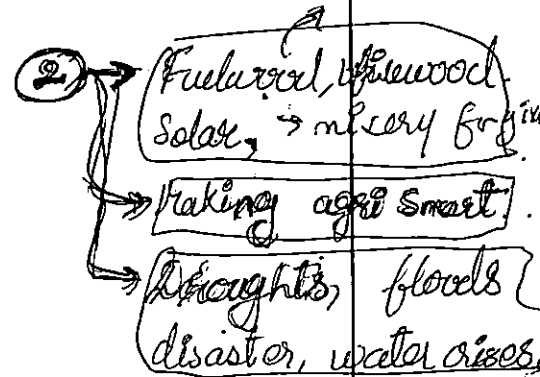 2
Fuelwood, firewood
Solar, → misery for
Making agri smart.
Droughts, floods
disaster, water crises,